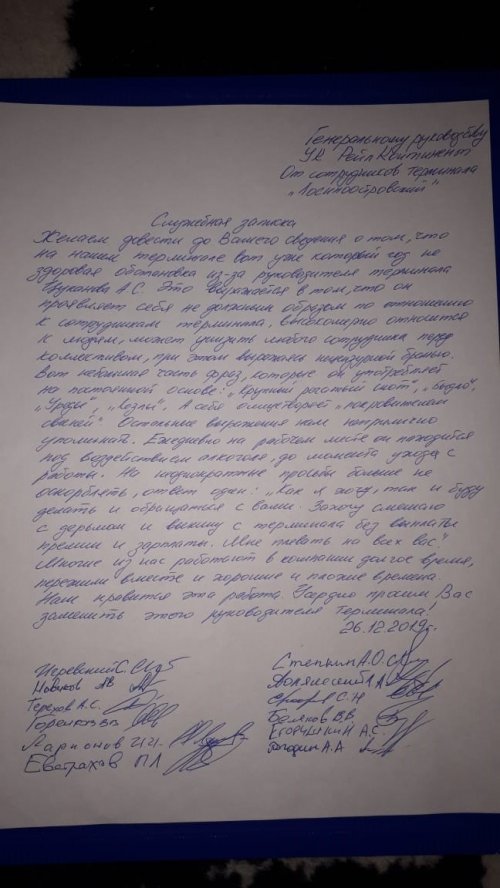 Генеральному руководству
УК РейлКонтинент
От сотрудников терминала
„Лосиноостровский"
Служебная записка
Желаем довести до Вашего сведения о том, что
на нашем терминале вот уже который год не
здоровая обстановка из-за руководителя терминала
А.С. Это выражается в том, что он
проявляет себя не должным образом по отношению
к сотрудникам терминала, высокомерно относится
к людям, может унизить любого сотрудника перед
коллективом, при этом выражаясь нецензурной бранью.
Вот небольшая часть фраз, которые он употребляет
на постоянной основе: „Крупный рогатый скот", „Быдло",
„Уроды", „Козлы". А себя олицетворяет „покровителем
свиней". Остальные выражения нам неприлично
упоминать. Ежедневно на рабочем месте он находится
под воздействием алкоголя, до момента ухода с
работы. На неоднократные просьбы больше не
оскорблять, ответ один: „Как я хочу, так и буду
делать и обращаться с вами. Захочу смешаю
с дерьмом и выкину с терминала без выплаты
премии и зарплаты. Мне плевать на всех вас"
Многие из нас работают в компании долгое время,
пережили вместе и хорошие и плохие времена.
Нам нравится эта работа. Просим Вас
заменить этого руководителя Терминала!
26.12.2019г.
Игревский С. Степкин А.О.
Новиков АВ
Терехов А.С. С.Н
Горенков ВВ Беляков В.В
Ларионов И.И. Егорушкин А.С.
Евстрахов ПЛ А.А